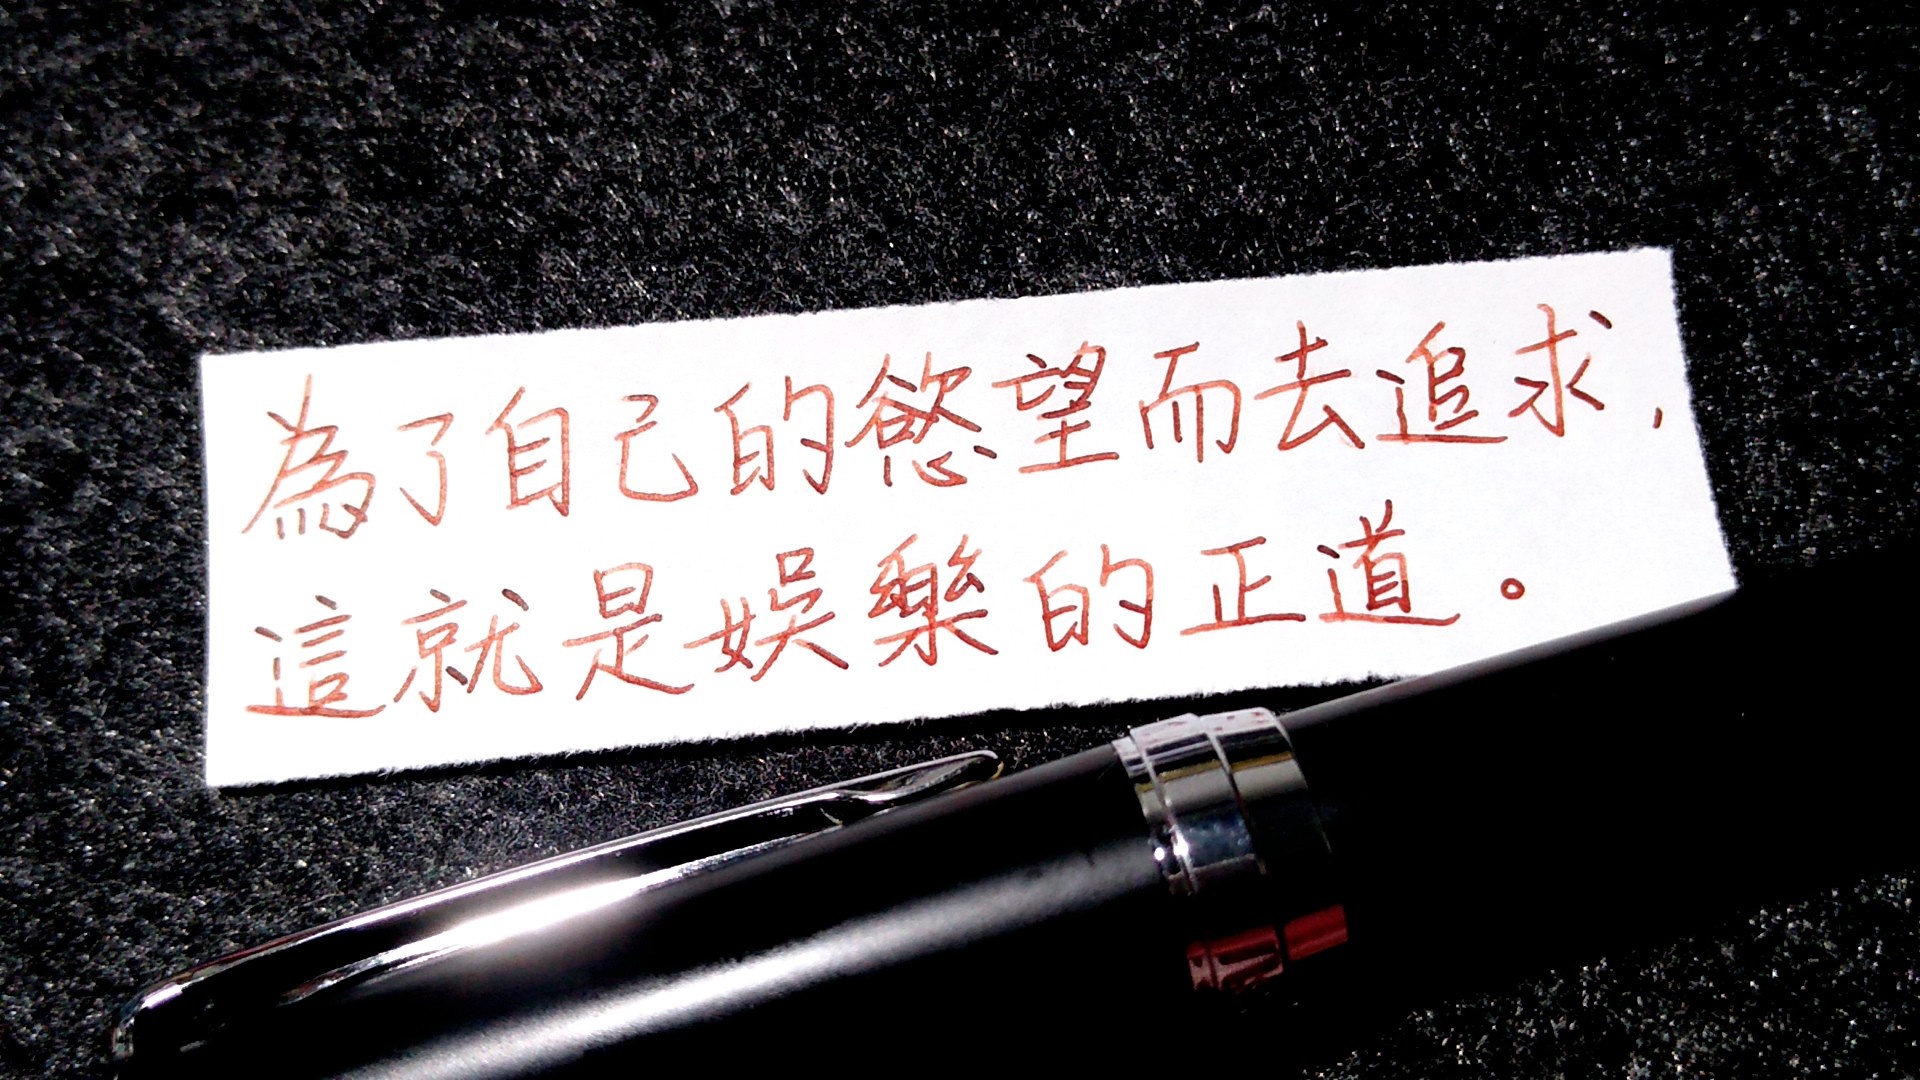 為了自己的慾望而去追求,
這就是娛樂的正道。